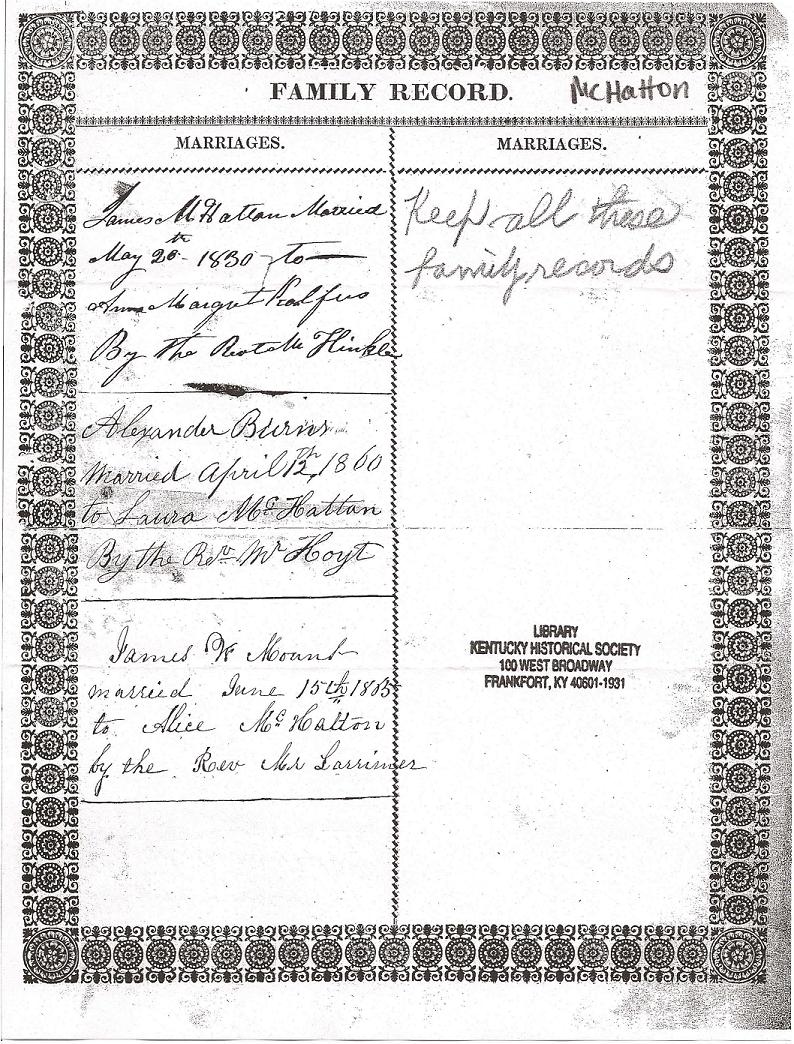 FAMILY RECORD. McHatton
MARRIAGES.
James McHatton Married
May 20th 1830 to
Anna Margret Kalfus
By the Rev Mr Hinkle
Alexander Burns
Married April 12th, 1860
to Laura McHatton
By the Rev Mr Hoyt
James W Mount
married June 15th 1865
to Alice McHatton
by the Rev Mr Larrimer
MARRIAGES.
Keep all these
family records
LIBRARY
KENTUCKY HISTORICAL SOCIETY
100 WEST BROADWAY
FRANKFORT, KY 40601-1931